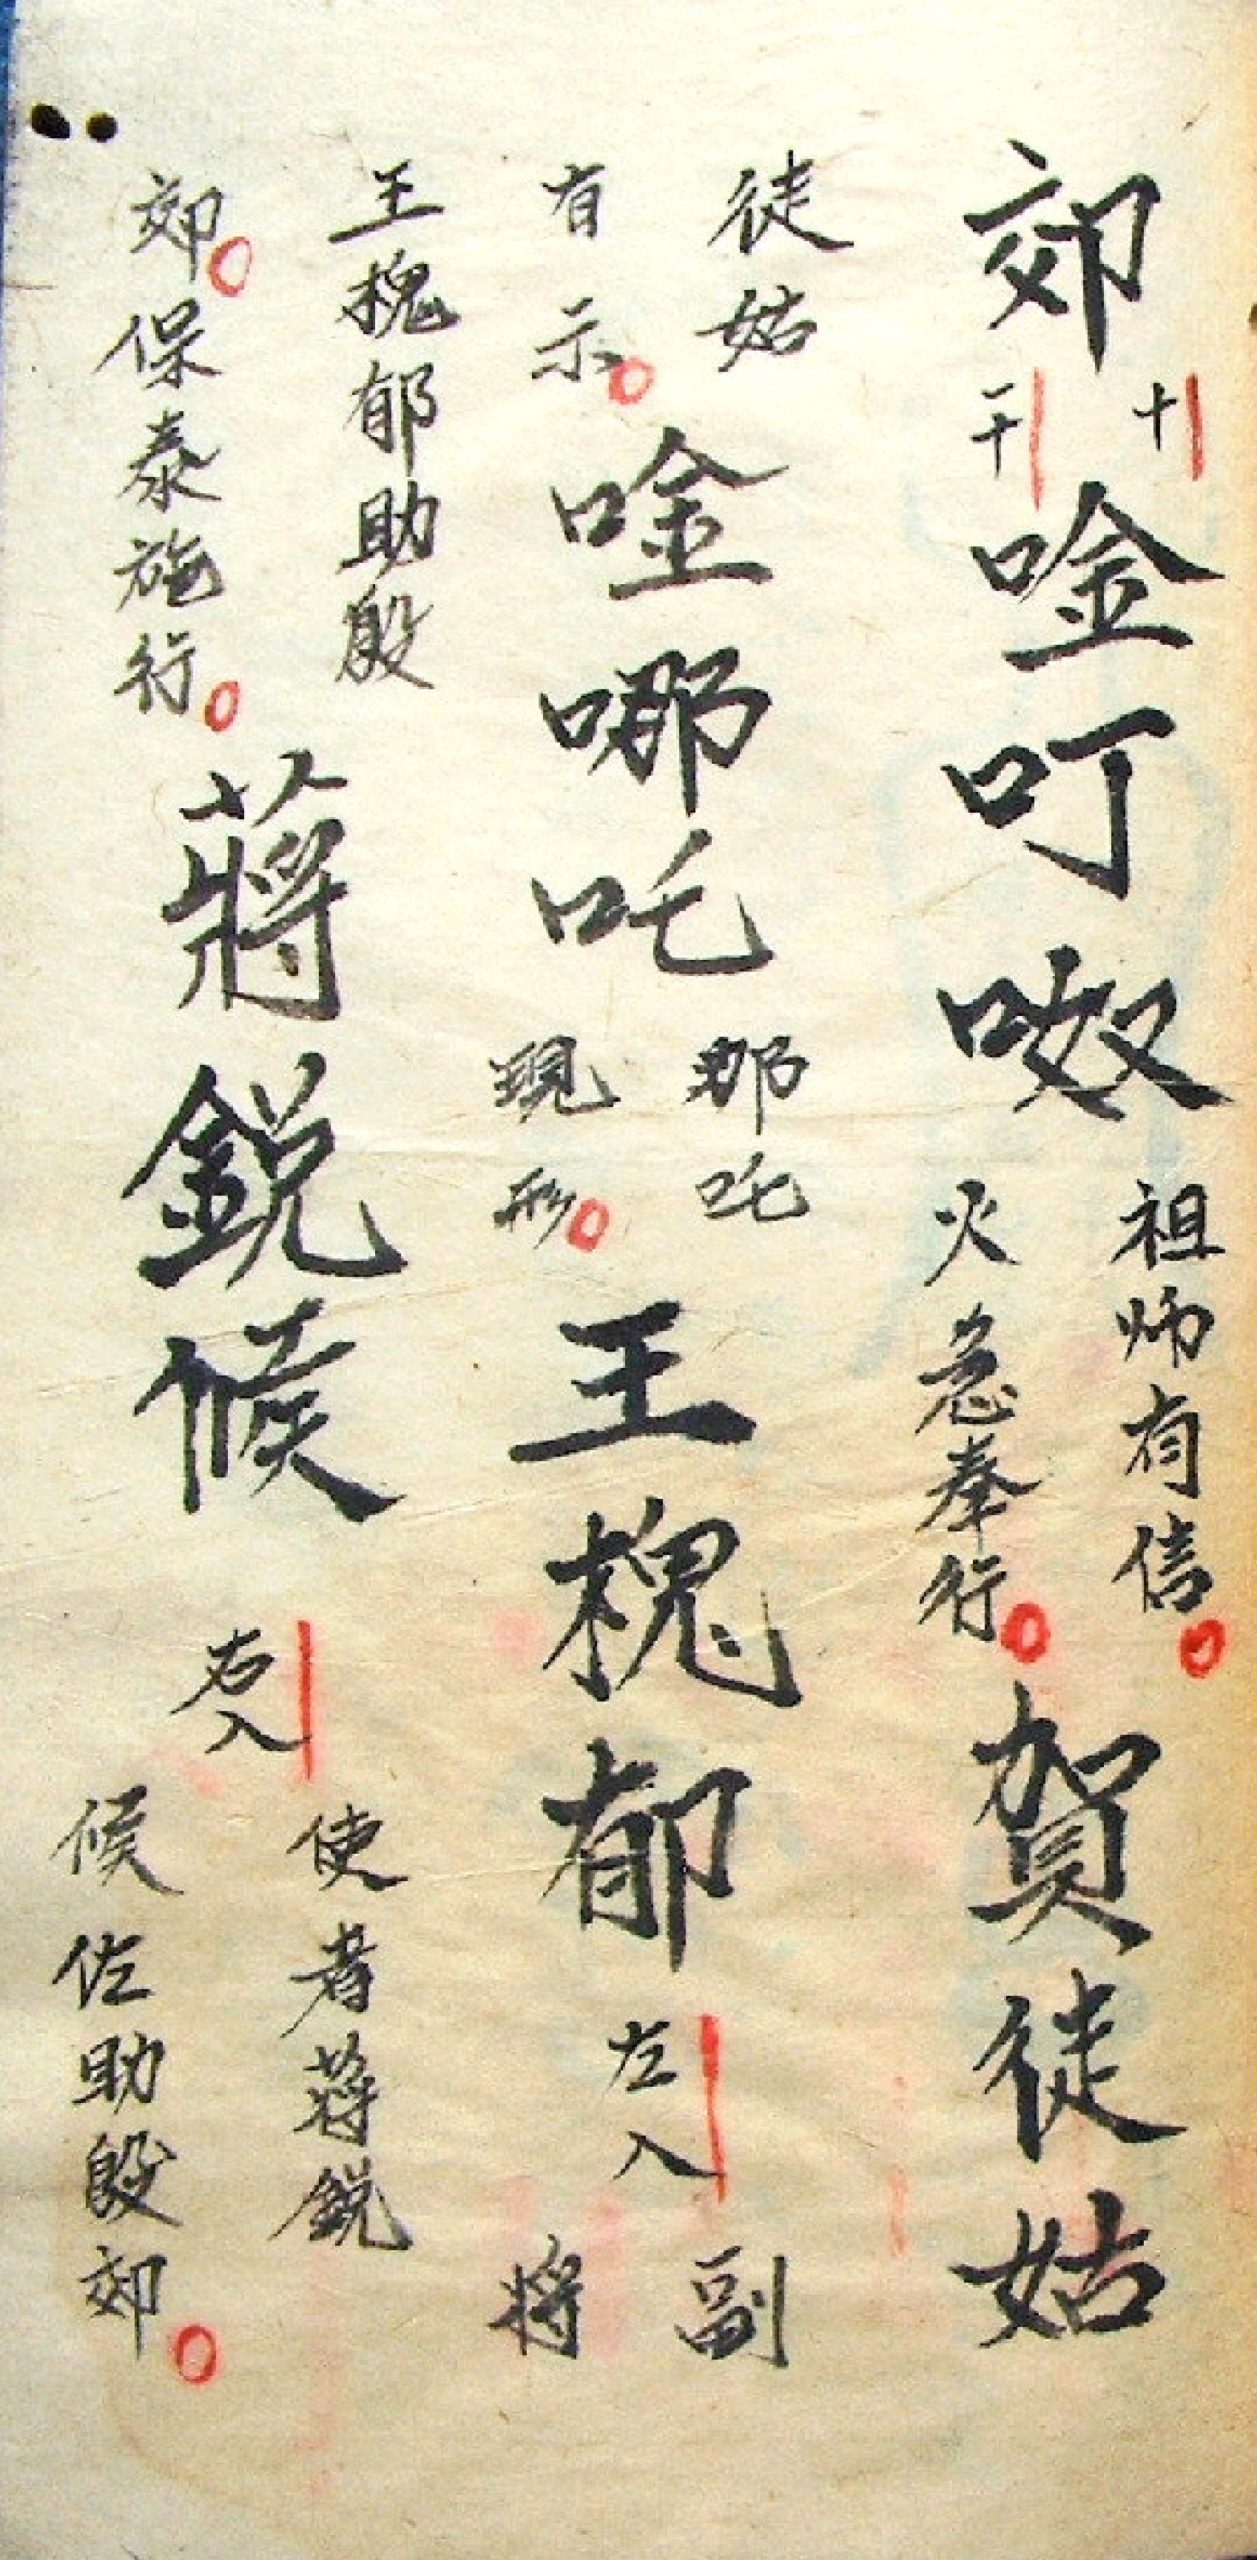 郊 十 二十 唫叮呶 祖师有信 火急奉行 賀徒姑
徒姑有示 唫哪吒 那吒現形 王槐郁 左入 副将
王槐郁助殷郊 保泰施行 蔣銳候 右入 使者蒋鋭候佐助殷郊